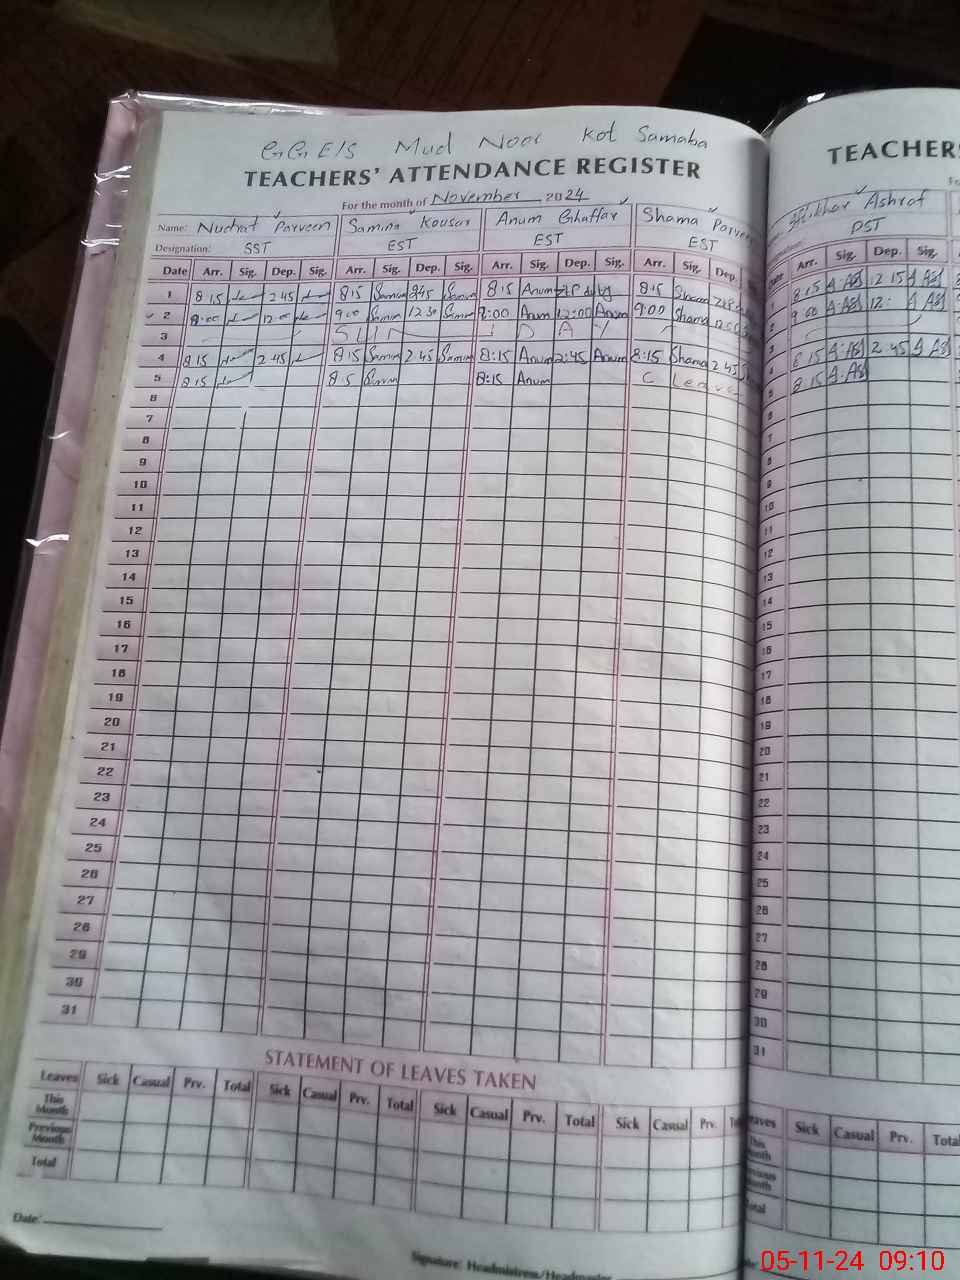 GGE/S Mud Noor Kot Samaba
TEACHERS' ATTENDANCE REGISTER
For the month of November 2024
Name: Nudrat Parveen Samina Kousar Anum Ghaffar Shama Parveen
Designation: SST EST EST EST
Date Arr. Sig. Dep. Sig. Arr. Sig. Dep. Sig. Arr. Sig. Dep. Sig. Arr. Sig. Dep.
1 8 15 2 45 8 15 Samin 245 Samin 8:15 Anum 8:15 Shama
2 8:00 12:00 9:00 Samin 12 30 Samin 9:00 Anum 12:00 Anum 9:00 Shama
3 SUNDAY
4 8 15 2 45 8 15 Samin 2 45 Samin 8:15 Anum 2:45 Anum 8:15 Shama 2 45
5 8 15 8 5 Samin 8:15 Anum C Leave
6
7
8
9
10
11
12
13
14
15
16
17
18
19
20
21
22
23
24
25
26
27
28
29
30
31
STATEMENT OF LEAVES TAKEN
Leaves Sick Casual Prv. Total Sick Casual Prv. Total Sick Casual Prv. Total Sick Casual Prv.
This Month
Previous Month
Total
Date:
Signature: Headmistress/Headmaster
TEACHERS'
Ashraf
PST
Arr. Sig. Dep. Sig.
8 15 A.As 12 15 A As
9 00 A.As 12: A As
8 15 A.As 2 45 A As
8 15 A.As
7
8
9
10
11
12
13
14
15
16
17
18
19
20
21
22
23
24
25
26
27
28
29
30
31
Sick Casual Prv. Total
05-11-24 09:10